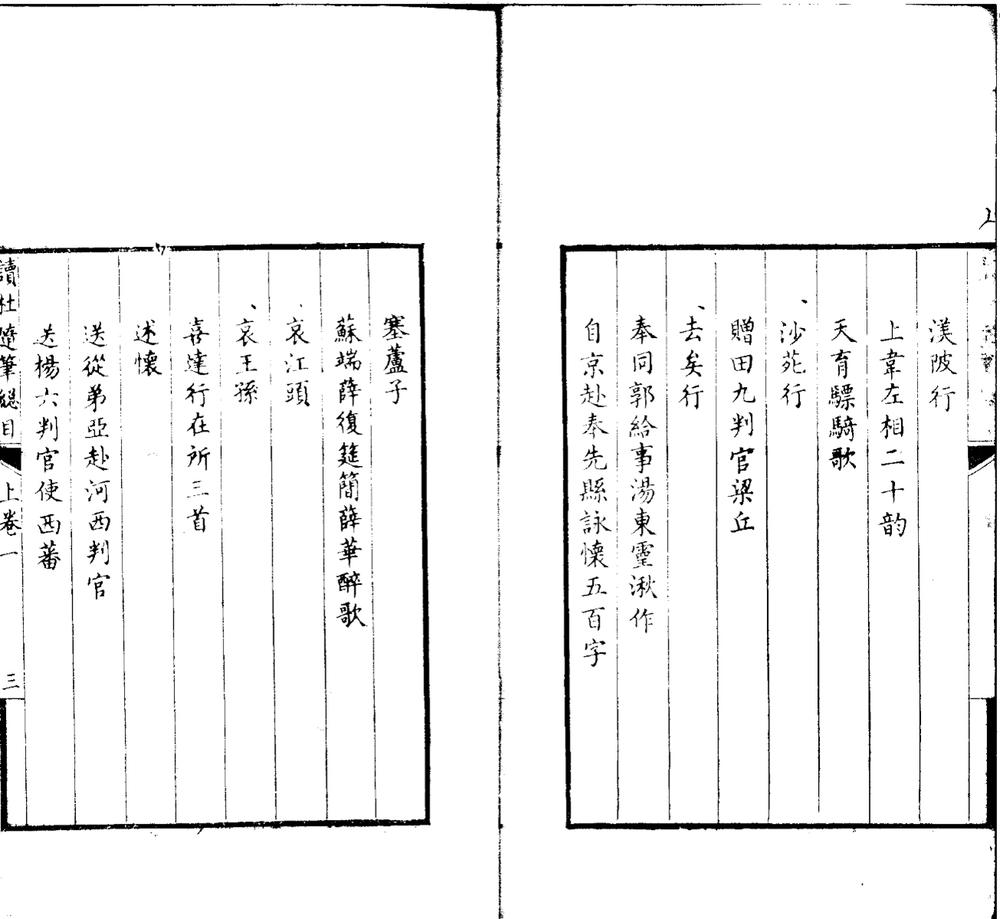 渼陂行
上韋左相二十韵
天育驃騎歌
沙苑行
贈田九判官梁丘
去矣行
奉同郭給事湯東靈湫作
自京赴奉先縣詠懷五百字
塞蘆子
蘇端薛復筵簡薛華醉歌
哀江頭
哀王孫
喜達行在所三首
述懷
送從弟亞赴河西判官
送楊六判官使西蕃
讀杜隨筆總目
上卷一
三